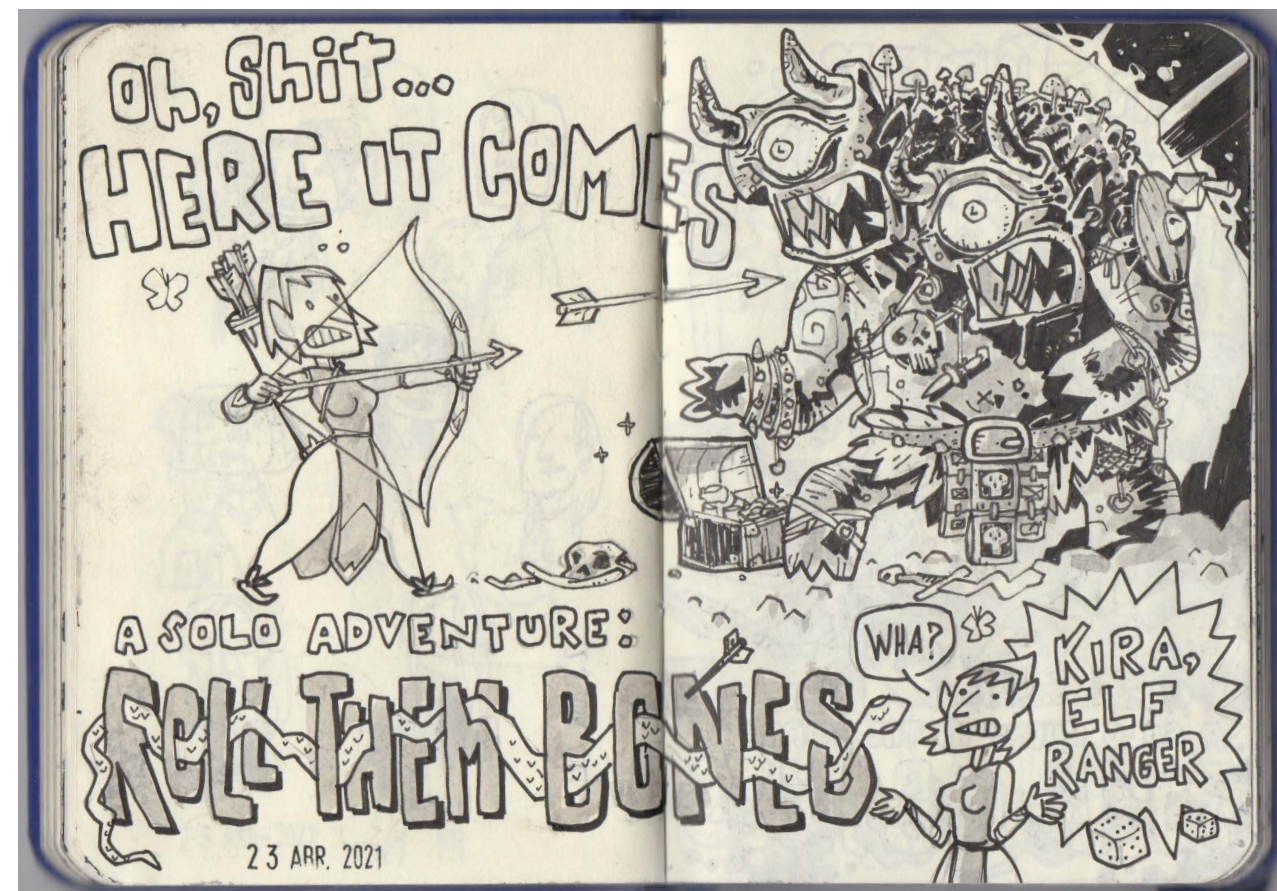 Oh, Shit...
HERE IT COMES
A SOLO ADVENTURE:
ROLL THEM BONES
WHA?
KIRA,
ELF
RANGER
23 ABR. 2021